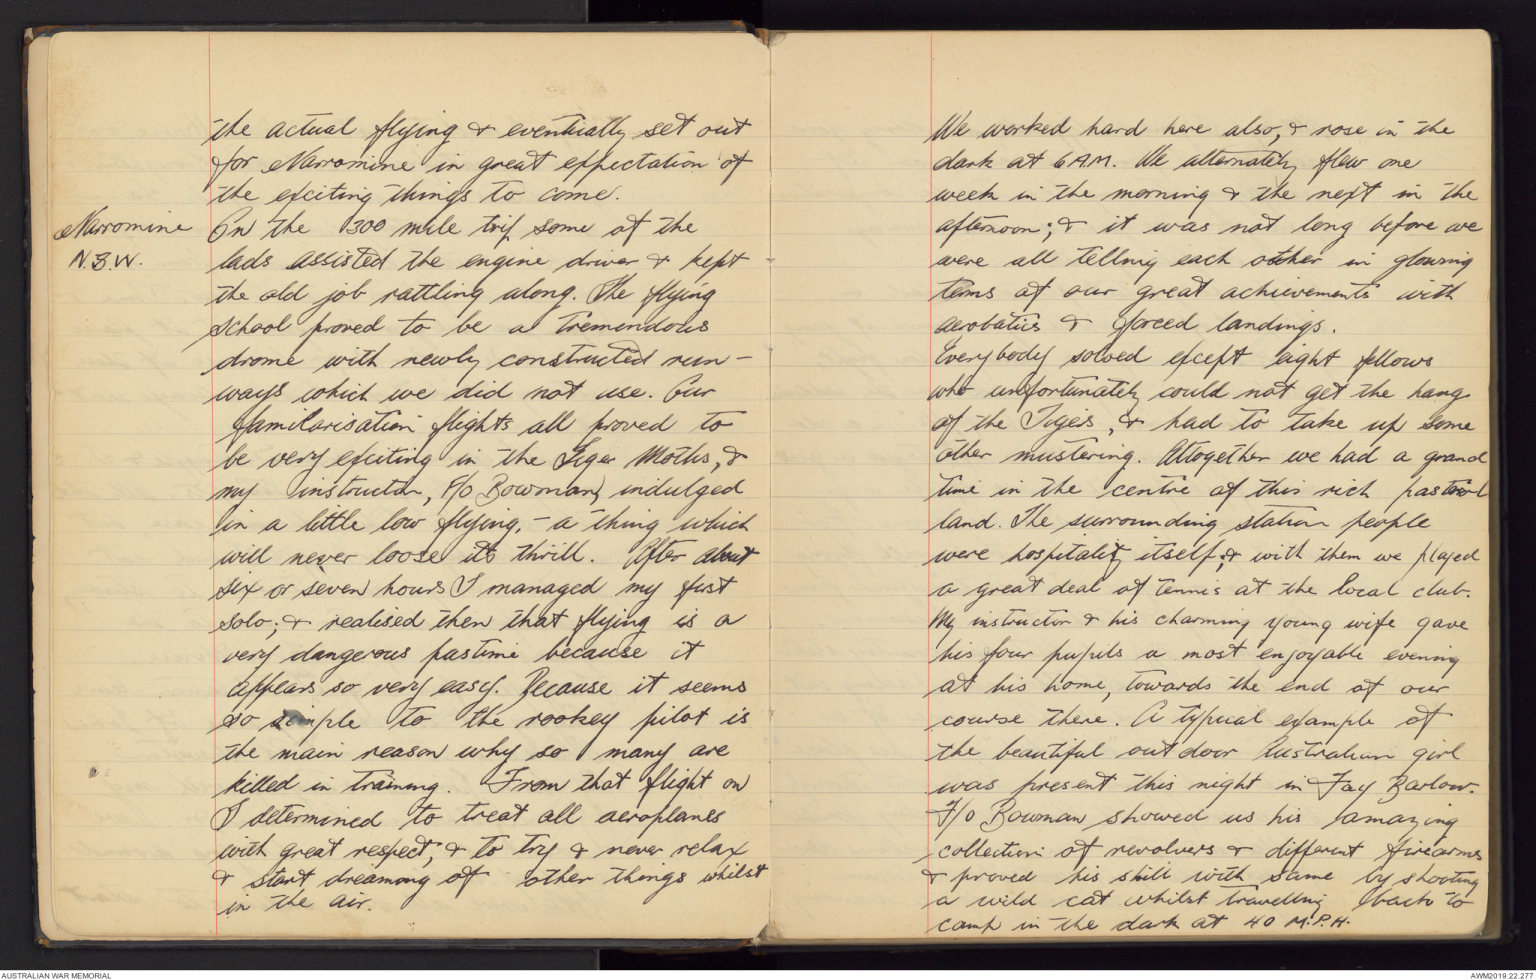 the actual flying & eventually set out
for Narromine in great expectation of
the exciting things to come.
Narromine
N.S.W.
On the 300 mile trip some of the
lads assisted the engine driver & kept
the old job rattling along. The flying
school proved to be a tremendous
drome with newly constructed run-
ways which we did not use. Our
familarisation flights all proved to
be very exciting in the Tiger Moths, &
my instructor, F/O Bowman, indulged
in a little low flying, - a thing which
will never loose its thrill. After about
six or seven hours I managed my first
solo; & realised then that flying is a
very dangerous pastime because it
appears so very easy. Because it seems
so simple to the rookey pilot is
the main reason why so many are
killed in training. From that flight on
I determined to treat all aeroplanes
with great respect, & to try & never relax
& start dreaming of other things whilst
in the air.
We worked hard here also, & rose in the
dark at 6 A.M. We alternately flew one
week in the morning & the next in the
afternoon; & it was not long before we
were all telling each other in glowing
terms of our great achievements with
aerobatics & forced landings.
Everybody soloed except eight fellows
who unfortunately could not get the hang
of the Tigers, & had to take up some
other mustering. Altogether we had a grand
time in the centre of this rich pastoral
land. The surrounding station people
were hospitality itself; & with them we played
a great deal of tennis at the local club.
My instructor & his charming young wife gave
his four pupils a most enjoyable evening
at his home, towards the end of our
course there. A typical example of
the beautiful outdoor Australian girl
was present this night in Fay Barlow.
F/O Bowman showed us his amazing
collection of revolvers & different firearms
& proved his skill with same by shooting
a wild cat whilst travelling back to
camp in the dark at 40 M.P.H.
AUSTRALIAN WAR MEMORIAL
AWM2019.22.277